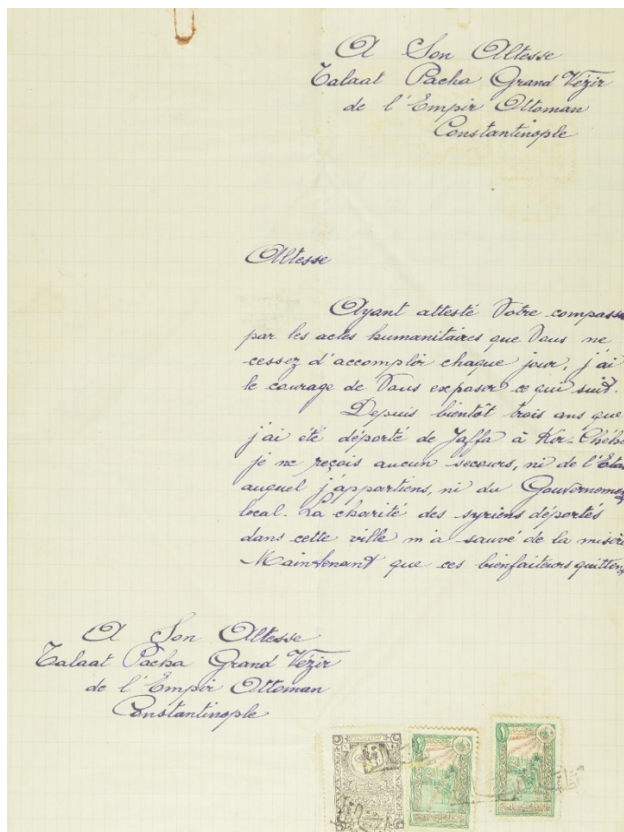 A Son Altesse
Talaat Pacha Grand Vézir
de l'Empir Ottoman
Constantinople
Altesse
Ayant attesté Votre compass
par les actes humanitaires que Vous ne
cessez d'accomplir chaque jour, j'ai
le courage de Vous exposer ce qui suit.
Depuis bientôt trois ans que
j'ai été déporté de Jaffa à Kir-Chéh
je ne reçois aucun secours, ni de l'Etat
auquel j'appartiens, ni du Gouvernemen
local. La charité des syriens déportés
dans cette ville m'a sauvé de la misèr
Maintenant que ces bienfaiteurs quitten
A Son Altesse
Talaat Pacha Grand Vézir
de l'Empir Ottoman
Constantinople